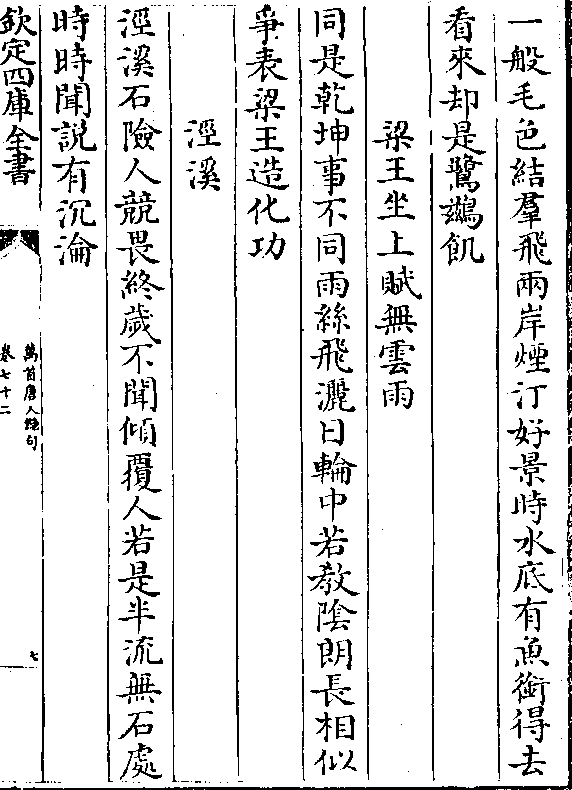 一般毛色結羣飛兩岸煙汀好景時水底有魚銜得去
看來却是鷺鷀飢
梁王坐上賦無雲雨
同是乾坤事不同雨絲飛灑日輪中若教陰朗長相似
爭表梁王造化功
涇溪
涇溪石險人競畏終歲不聞傾覆人若是半流無石處
時時聞說有沉淪
欽定四庫全書
萬首唐人絶句
卷七十二
七